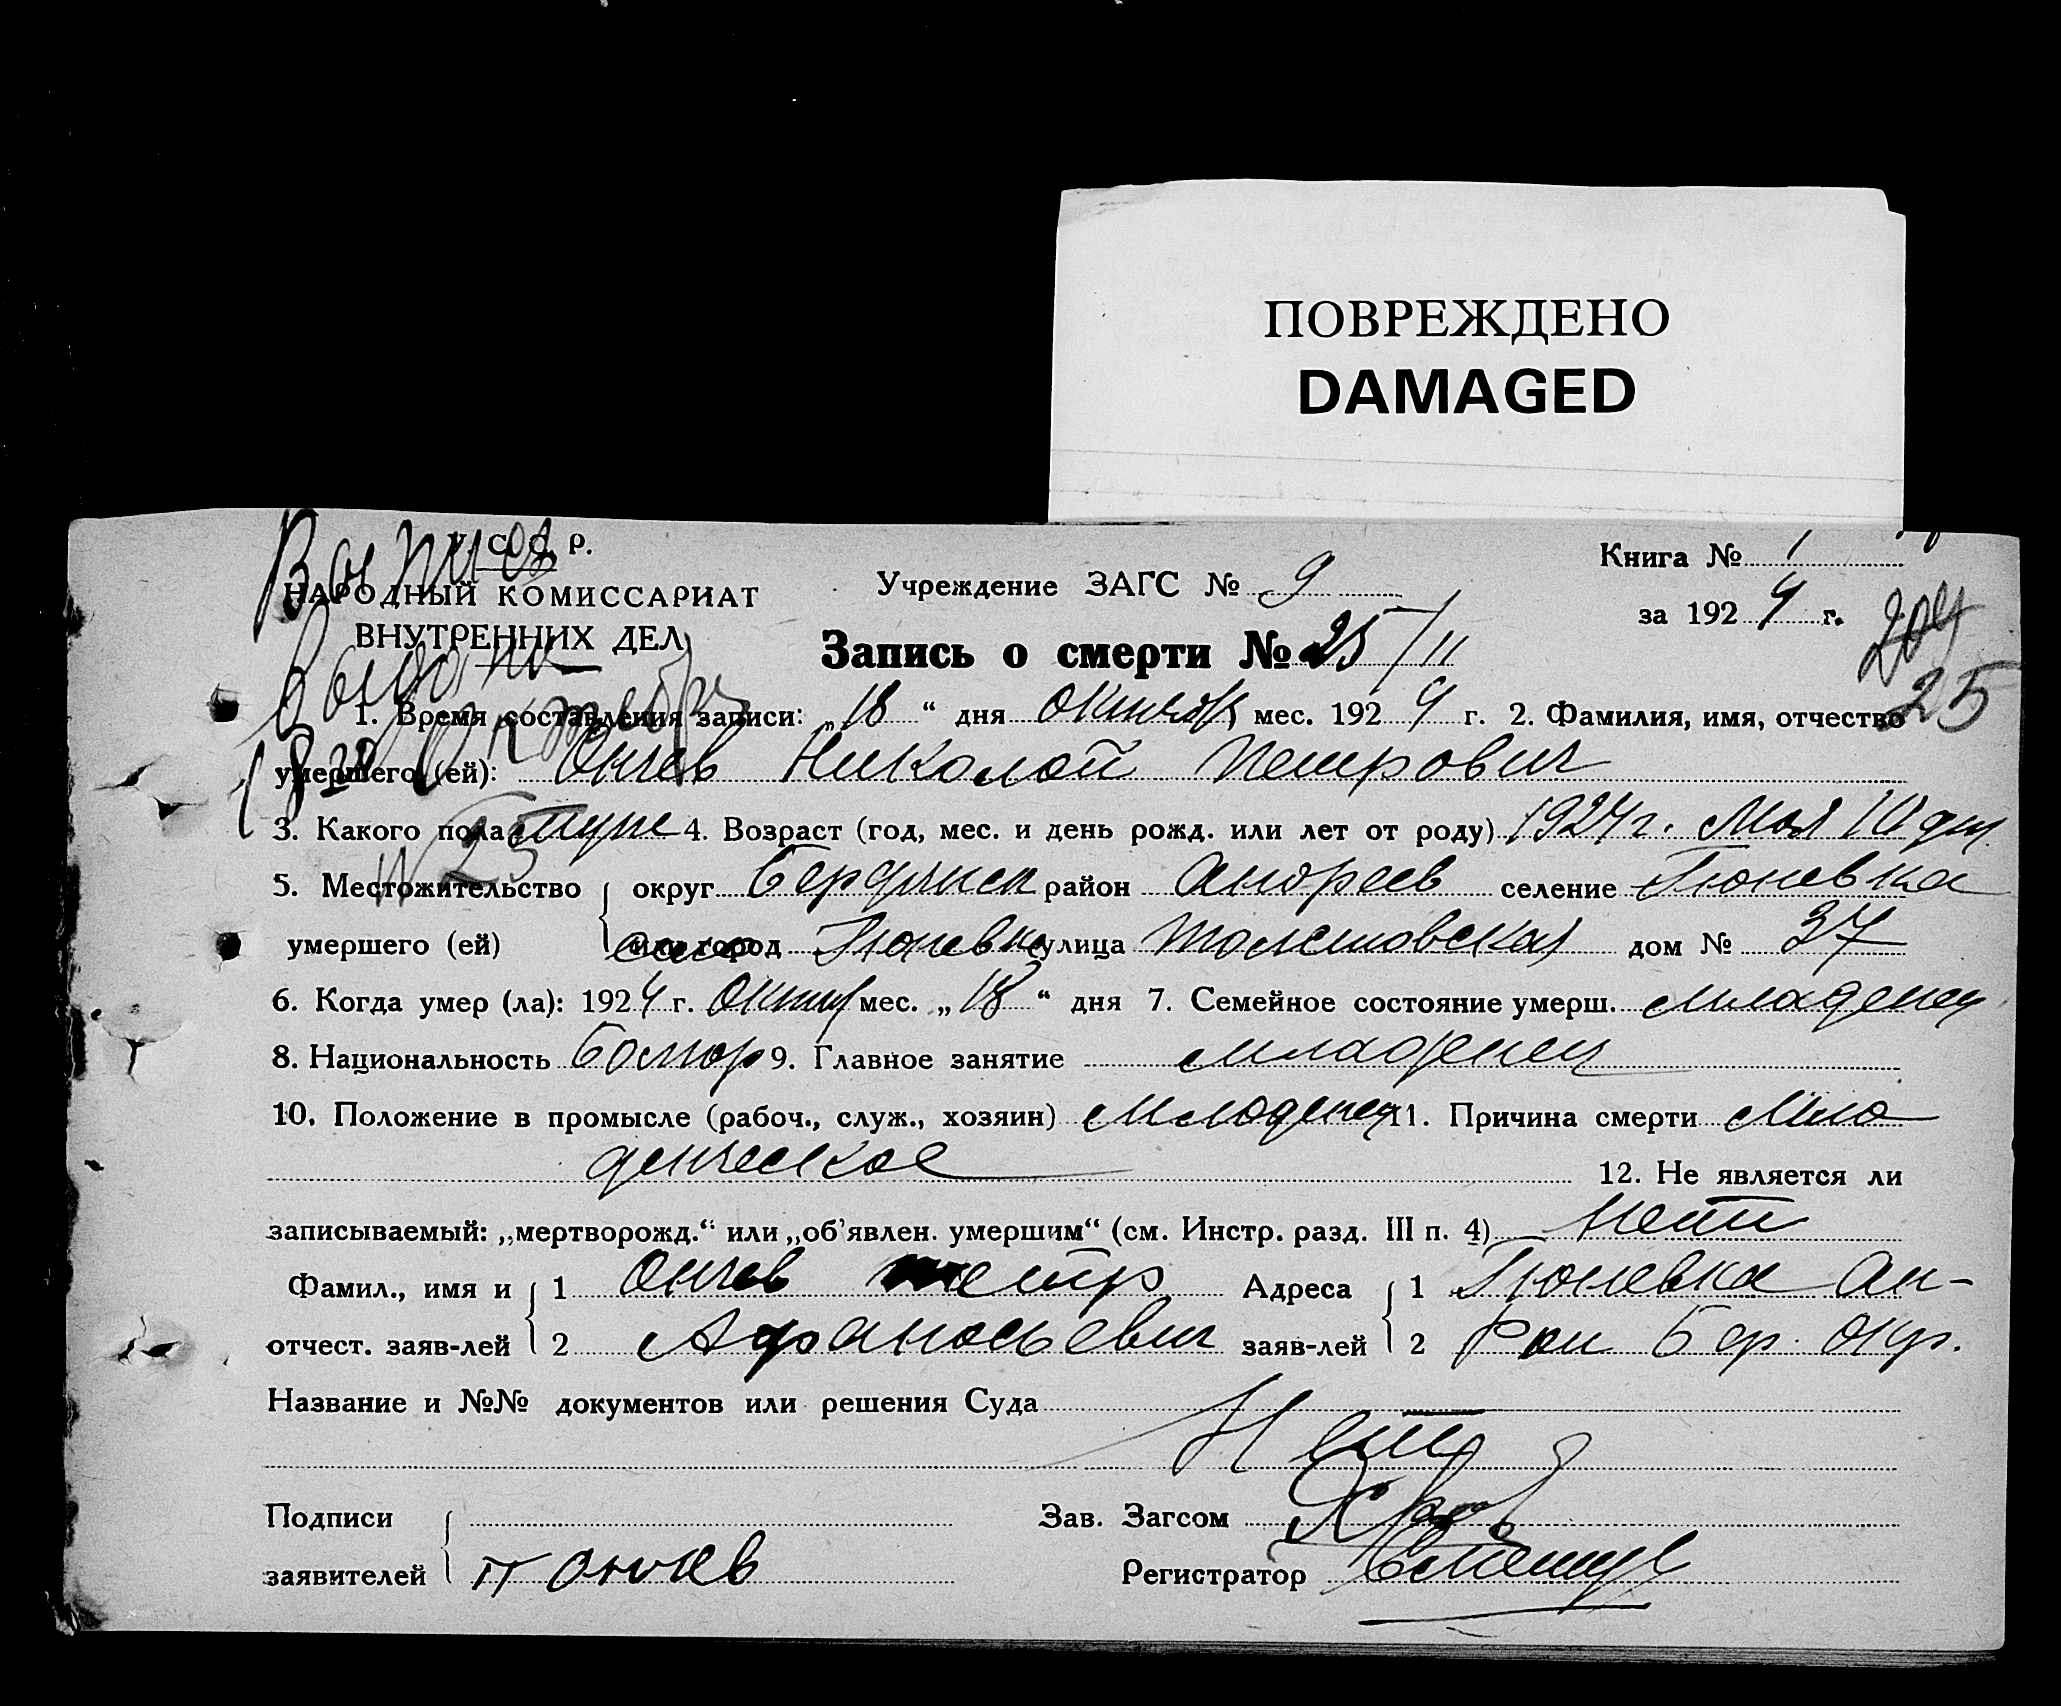 ПОВРЕЖДЕНО
DAMAGED
У. С. С. Р.
НАРОДНЫЙ КОМИССАРИАТ
ВНУТРЕННИХ ДЕЛ
Выпись
выдана
18го Октября
№ 25
Учреждение ЗАГС № 9
Книга № 1
за 1924 г.
204
25
Запись о смерти № 25/11
1. Время составления записи: „18“ дня октябр мес. 1924 г. 2. Фамилия, имя, отчество
умершего (ей): Ончев Николай Петрович
3. Какого пола муж 4. Возраст (год, мес. и день рожд. или лет от роду) 1924 г. Мая 10 дня
5. Местожительство округ Бердянск район Андреев селение Тюневка
умершего (ей) или город село Тюневка улица Толстовская дом № 37
6. Когда умер (ла): 1924 г. Октяб мес. „18“ дня 7. Семейное состояние умерш. младенец
8. Национальность Болгар 9. Главное занятие младенец
10. Положение в промысле (рабоч., служ., хозяин) младенец 11. Причина смерти Мла
денческое 12. Не является ли
записываемый: „мертворожд.“ или „об'явлен. умершим“ (см. Инстр. разд. III п. 4) Нет
Фамил., имя и 1 Ончев Петр Адреса 1 Тюневка Ан-
отчест. заяв-лей 2 Афанасьевич заяв-лей 2 Рай Бер. Окр.
Название и №№ документов или решения Суда
Нет
Подписи Зав. Загсом
заявителей П Ончев Регистратор